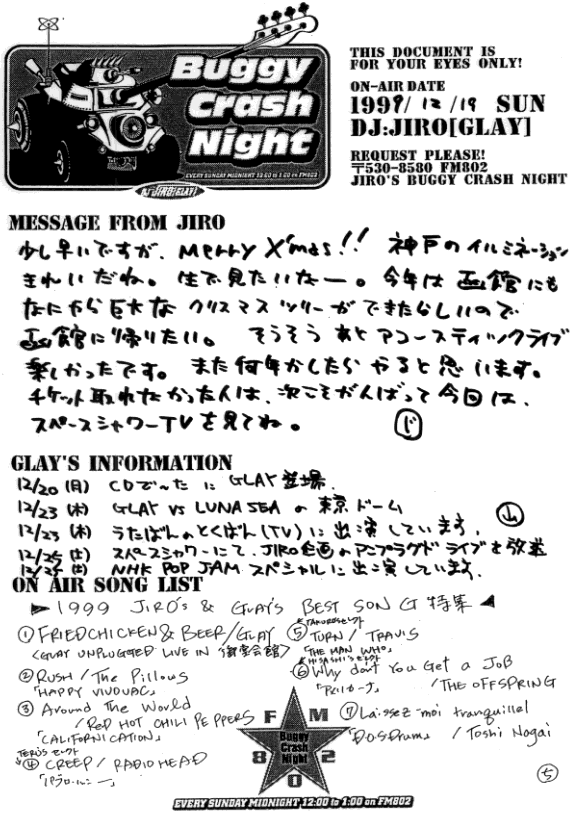 Buggy
Crash
Night
EVERY SUNDAY MIDNIGHT 12:00 to 1:00 on FM802
DJ:JIRO[GLAY]
THIS DOCUMENT IS
FOR YOUR EYES ONLY!
ON-AIR DATE
1999/12/19 SUN
DJ:JIRO[GLAY]
REQUEST PLEASE!
〒530-8580 FM802
JIRO'S BUGGY CRASH NIGHT
MESSAGE FROM JIRO
少し早いですが、Merry X'mas!! 神戸のイルミネーション
きれいだね。生で見たいなー。今年は函館にも
なにやら巨大なクリスマスツリーができたらしいので
函館に帰りたい。そうそうあとアコースティックライブ
楽しかったです。また何年かしたらやると思います。
チケット取れなかった人は、次こそがんばって今回は、
スペースシャワーTVを見てね。 ジ
GLAY'S INFORMATION
12/20(月) CDでーたにGLAY登場.
12/23(木) GLAY VS LUNA SEA の東京ドーム
12/23(木) うたばんのとくばん(TV)に出演しています.
12/25(土) スペースシャワーにて、JIRO企画のアンプラグドライブを放送
12/25(土) NHK POP JAM スペシャルに出演しています.
山
ON AIR SONG LIST
▶1999 JIRO's & GLAY's BEST SONG 特集◀
①FRIEDCHICKEN & BEER/GLAY
<GLAY UNPLUGGED LIVE IN 衛星会館>
②RUSH/The Pillows
「HAPPY VIVOUAC」
③Around The World
/RED HOT CHILI PEPPERS
「CALIFORNICATION」
TERUセレクト
④CREEP/RADIOHEAD
TAKUROセレクト
⑤TURN/TRAVIS
「THE MAN WHO」
HISASHIセレクト
⑥Why don't You Get a JOB
/THE OFFSPRING
⑦Laissez-moi tranquille!
「D.O.S Drum」/Toshi Nagai
ち
FM
802
Buggy
Crash
Night
EVERY SUNDAY MIDNIGHT 12:00 to 1:00 on FM802